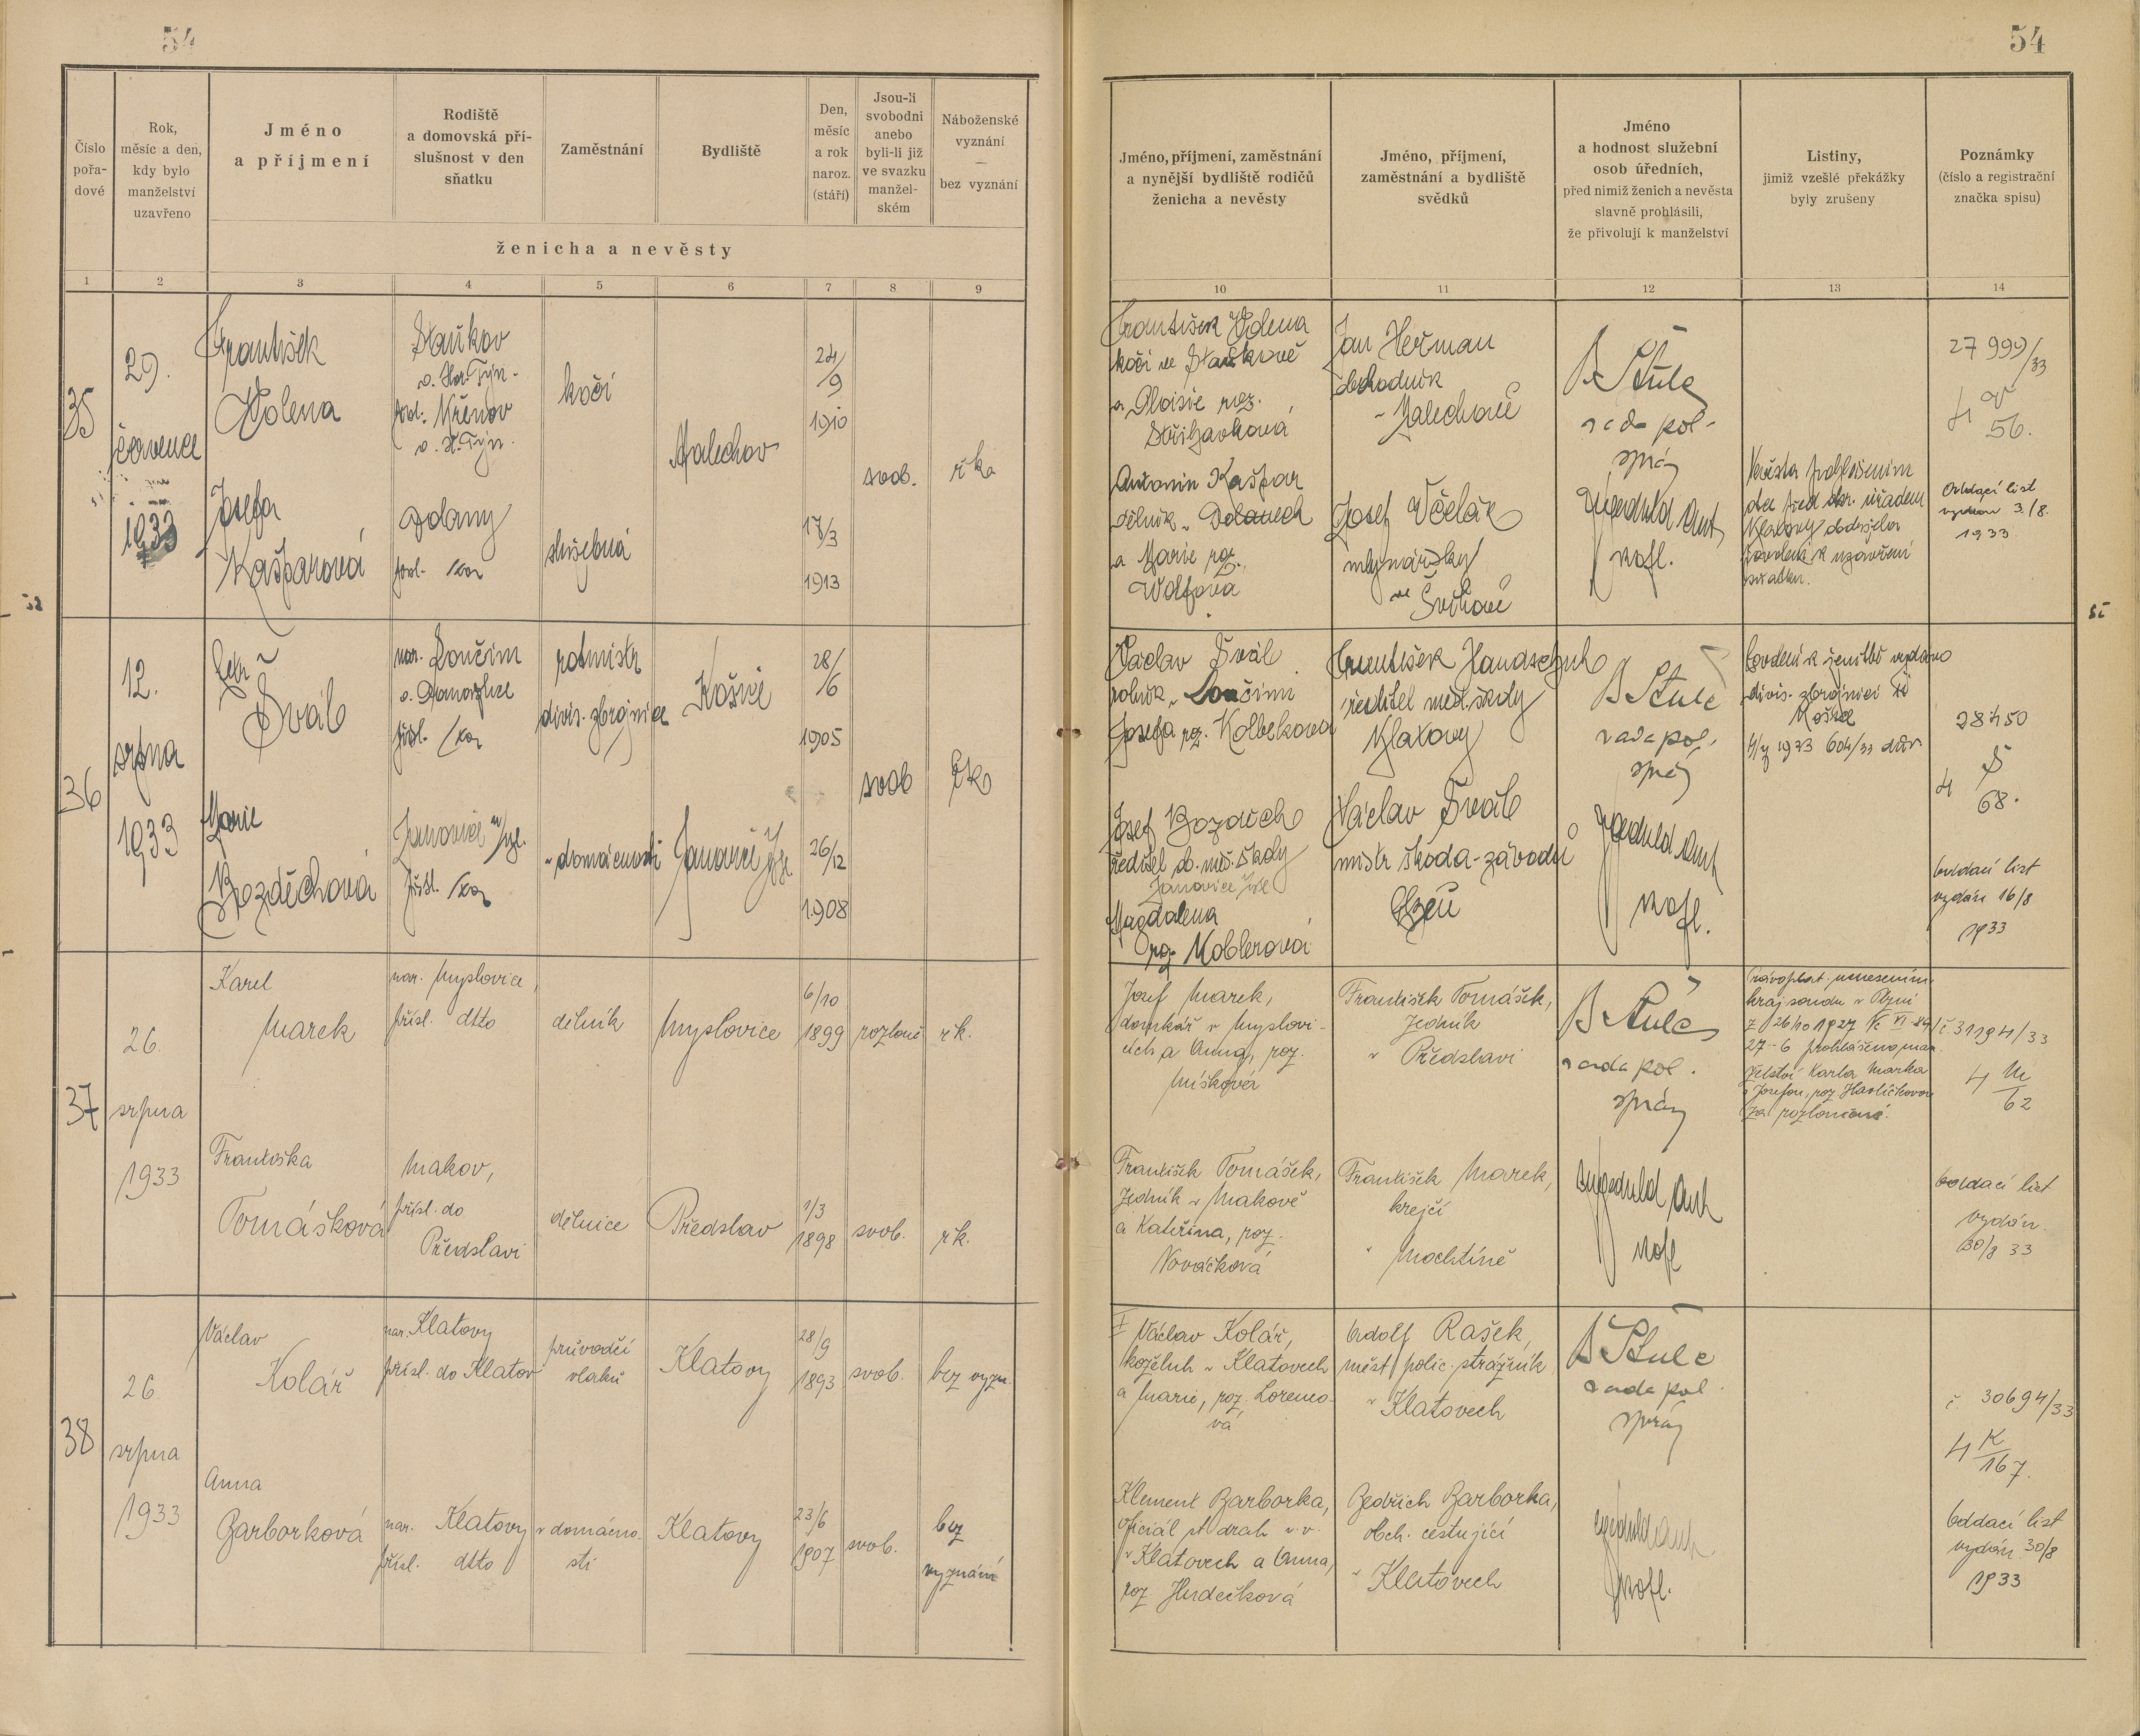 54
Číslo
pořa-
dové
Rok,
měsíc a den,
kdy bylo
manželství
uzavřeno
Jméno
a příjmení
Rodiště
a domovská pří-
slušnost v den
sňatku
Zaměstnání
Bydliště
Den,
měsíc
a rok
naroz.
(stáří)
Jsou-li
svobodni
anebo
byli-li již
ve svazku
manžel-
ském
Náboženské
vyznání
—
bez vyznání
ženicha a nevěsty
1 2 3 4 5 6 7 8 9
35
29.
července
1933
František
Holena
Staňkov
o. Hor. Týn.
Křenov
o. H. Týn.
kočí
Malechov
24/9
1910
svob.
řk.
Josefa
Kašparová
Dolany
služebná
17/3
1913
36
12.
srpna
1933
Petr
Šváb
nar. Loučim
o. Domažlice
přísl. tam
rotmistr
divis. zbrojnice
Košice
28/6
1905
svob
řk
Marie
Bozděchová
Janovice n/Úhl.
přísl. tam
v domácnosti
Janovice
26/12
1908
37
26.
srpna
1933
Karel
Marek
nar. Myslovice,
přísl. dtto
dělník
Myslovice
6/10
1899
rozlouč
řk.
Františka
Tomášková
Makov,
přísl. do
Předslavi
dělnice
Předslav
1/3
1898
svob.
řk.
38
26.
srpna
1933
Václav
Kolář
nar. Klatovy
přísl. do Klatov
průvodčí
vlaků
Klatovy
28/9
1893
svob.
bez vyzn.
Anna
Barborková
nar. Klatovy
přísl. dtto
v domácno-
sti
Klatovy
23/6
1907
svob.
bez
vyznání
54
Jméno, příjmení, zaměstnání
a nynější bydliště rodičů
ženicha a nevěsty
Jméno, příjmení,
zaměstnání a bydliště
svědků
Jméno
a hodnost služební
osob úředních,
před nimiž ženich a nevěsta
slavně prohlásili,
že přivolují k manželství
Listiny,
jimiž vzešlé překážky
byly zrušeny
Poznámky
(číslo a registrační
značka spisu)
10 11 12 13 14
František Holena
kočí ve Staňkově
a Aloisie roz.
Jan Heřman
obchodník
v Malechově
rada pol.
správy
27999/33
56.
Antonín Kašpar
dělník v Dolanech
a Marie roz.
Wolfová
Josef Včelák
mlynářský
ve Švihově
Oddací list
vydán 3./8.
1933
Václav Šváb
rolník v Loučimi
Josefa roz.
František Handschuh
ředitel měšť. školy
Klatovy
rada pol.
správy
divis. zbrojnicí
Košice
28450
4 Š
68.
Josef Bozděch
ředitel ob. měš. školy
Janovice
Magdalena
roz. Koblerová
Václav Šváb
mistr Škoda-závodů
Plzeň
oddací list
vydán 16/8
1933
Josef Marek,
domkář v Myslovi-
cích a Anna, roz.
Míšková
František Tomášek,
zedník
v Předslavi
rada pol.
správy
Právoplat. usnesením
kraj. soudu v Plzni
z 26/10 1927
27-6 prohlášeno man
želství Karla Marka
s Josefou, roz. Havlíčkovou
za rozloučené.
č 31194/33
4 M
62
František Tomášek,
zedník v Makově
a Kateřina, roz.
Nováčková
František Marek,
krejčí
v Mochtíně
oddací list
vydán
30/8 33
Václav Kolář,
koželuh v Klatovech
a Marie, roz. Lorenco-
vá
Adolf Rašek,
měst. polic. strážník
v Klatovech
rada pol.
správy
č. 30694/33
4 K
167.
Klement Barborka,
oficiál st. drah v. v.
v Klatovech a Anna,
roz Hudečková
Bedřich Barborka,
obch. cestující
v Klatovech
oddací list
vydán 30/8
1933